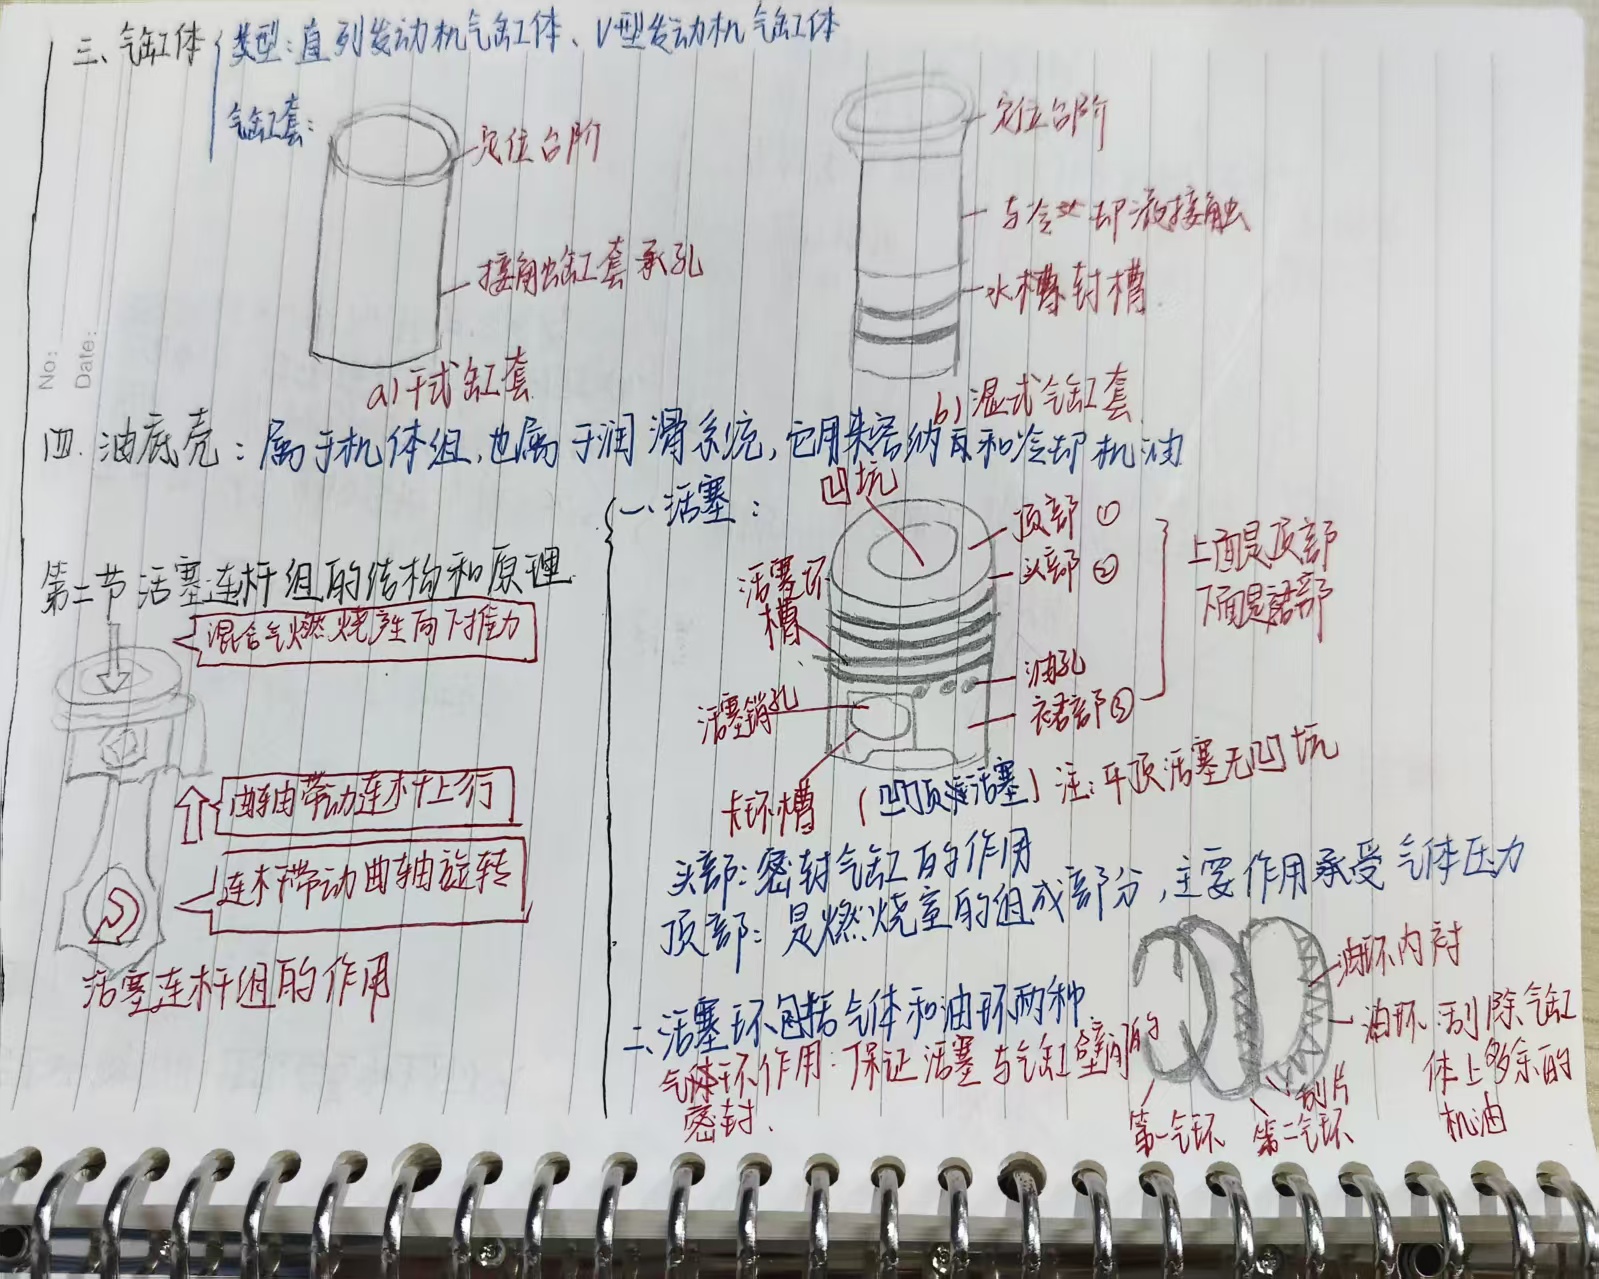 三、气缸体
类型：直列发动机气缸体、V型发动机气缸体
气缸套：
定位台阶
接触缸套承孔
a)干式缸套
定位台阶
与冷却液接触
水槽封槽
b)湿式气缸套
No:
Date:
四.油底壳：属于机体组,也属于润滑系统,它用来容纳和冷却机油
第二节 活塞连杆组的结构和原理
混合气燃烧产生向下推力
曲轴带动连杆上行
连杆带动曲轴旋转
活塞连杆组的作用
一、活塞：
凹坑
顶部①
头部②
活塞环
槽
油孔
裙部③
活塞销孔
卡环槽
上面是顶部
下面是裙部
(凹顶活塞)注:平顶活塞无凹坑
头部:密封气缸的作用
顶部:是燃烧室的组成部分,主要作用承受气体压力
二、活塞环包括气体和油环两种
气体环作用:保证活塞与气缸壁间的
密封.
油环内衬
油环:刮除气缸
体上多余的
机油
刮片
第一气环
第二气环